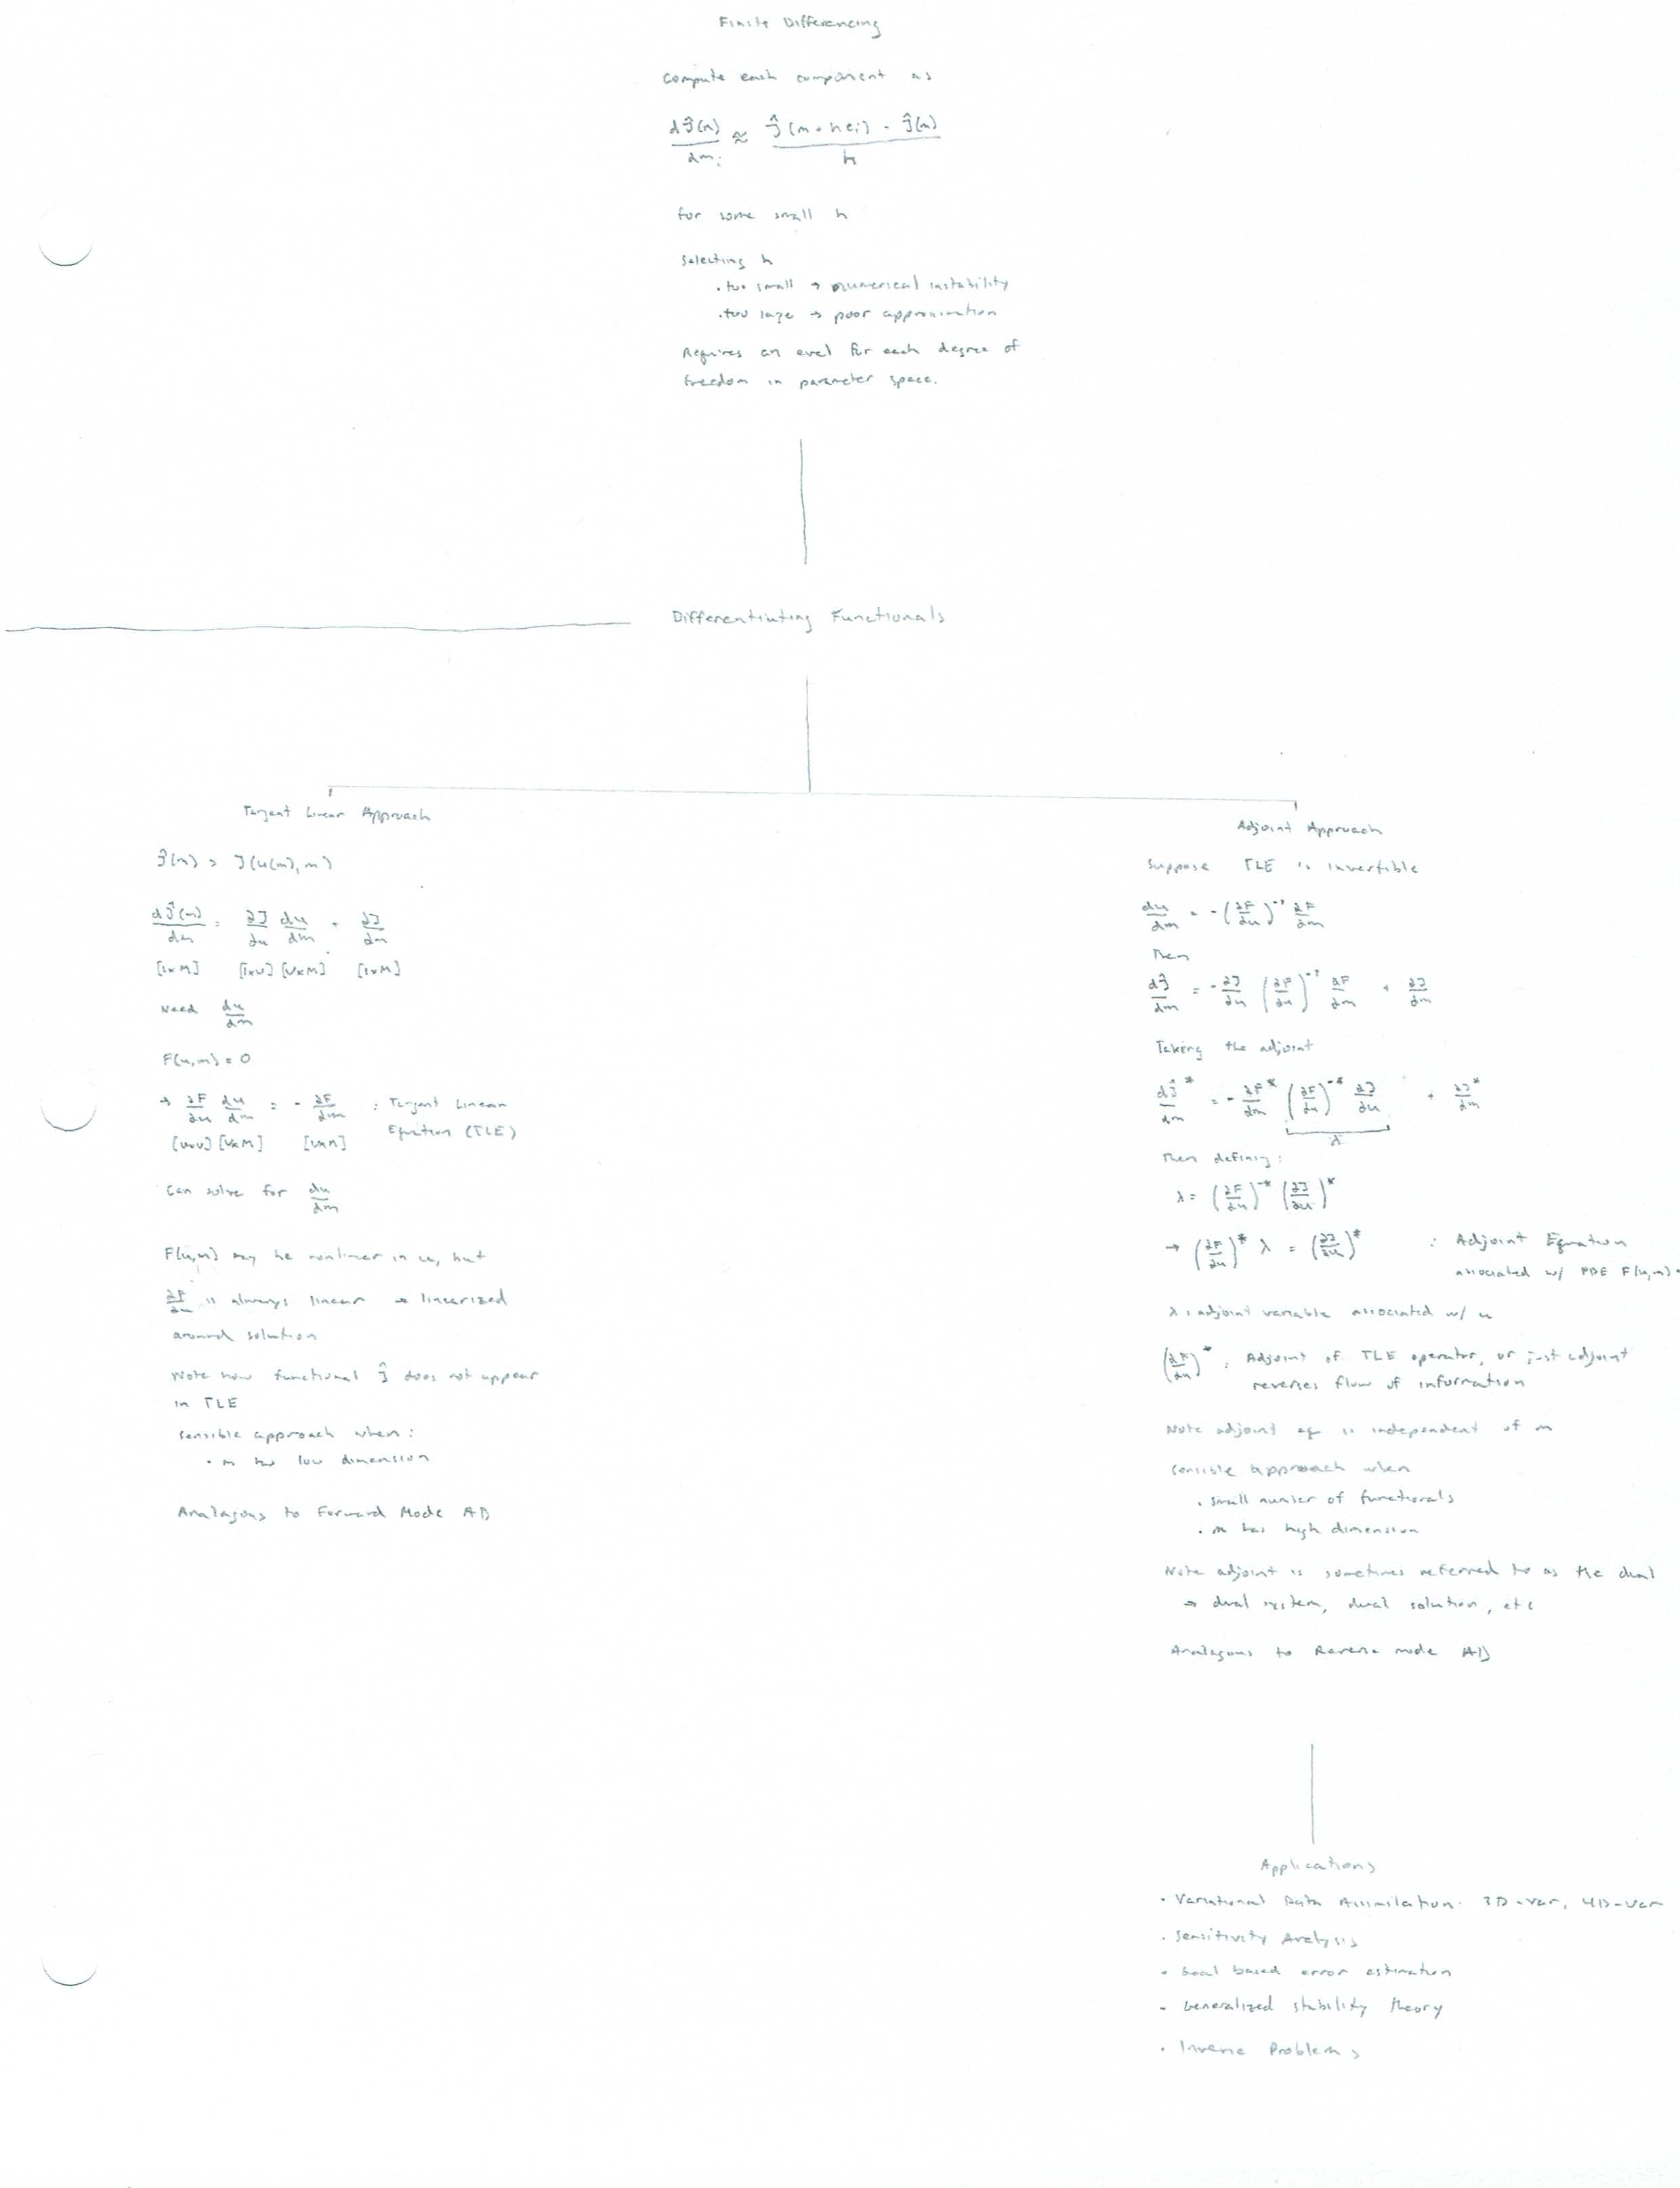 Finite Differencing
Compute each component as
dĴ(m)/dm_i ≈ (Ĵ(m + he_i) - Ĵ(m))/h
for some small h
Selecting h
. too small → numerical instability
. too large → poor approximation
Requires an eval for each degree of
freedom in parameter space.
Differentiating Functionals
Tangent Linear Approach
Ĵ(m) = J(u(m), m)
dĴ(m)/dm = ∂J/∂u du/dm + ∂J/∂m
[1×M] [1×U] [U×M] [1×M]
Need du/dm
F(u,m) = 0
→ ∂F/∂u du/dm = - ∂F/∂m : Tangent Linear
Equation (TLE)
[U×U] [U×M] [U×M]
Can solve for du/dm
F(u,m) may be nonlinear in u, but
∂F/∂u is always linear → linearized
around solution
Note how functional Ĵ does not appear
in TLE
Sensible approach when:
. m has low dimension
Analagous to Forward Mode AD
Adjoint Approach
Suppose TLE is invertible
du/dm = -(∂F/∂u)^-1 ∂F/∂m
Then
dĴ/dm = - ∂J/∂u (∂F/∂u)^-1 ∂F/∂m + ∂J/∂m
Taking the adjoint
dĴ/dm^* = - ∂F/∂m^* (∂F/∂u)^-* ∂J/∂u + ∂J/∂m^*
λ
Then defining:
λ = (∂F/∂u)^-* (∂J/∂u)^*
→ (∂F/∂u)^* λ = (∂J/∂u)^* : Adjoint Equation
associated w/ PDE F(u,m)=
λ : adjoint variable associated w/ u
(∂F/∂u)^* : Adjoint of TLE operator, or just adjoint
reverses flow of information
Note adjoint eq is independent of m
Sensible approach when
. small number of functionals
. m has high dimension
Note adjoint is sometimes referred to as the dual
→ dual system, dual solution, etc
Analagous to Reverse mode AD
Applications
. Variational Data Assimilation. 3D-var, 4D-var
. Sensitivity Analysis
. Goal based error estimation
- Generalized stability theory
. Inverse Problems